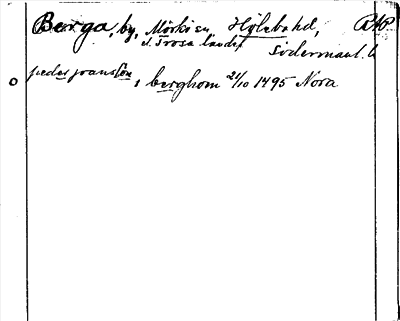 Berga, by, Mörkö sn, Hölebo hd, RAP
t. Trosa landsf
Södermanl. l.
peder jonsson
i berghom 21/10 1495 Nora